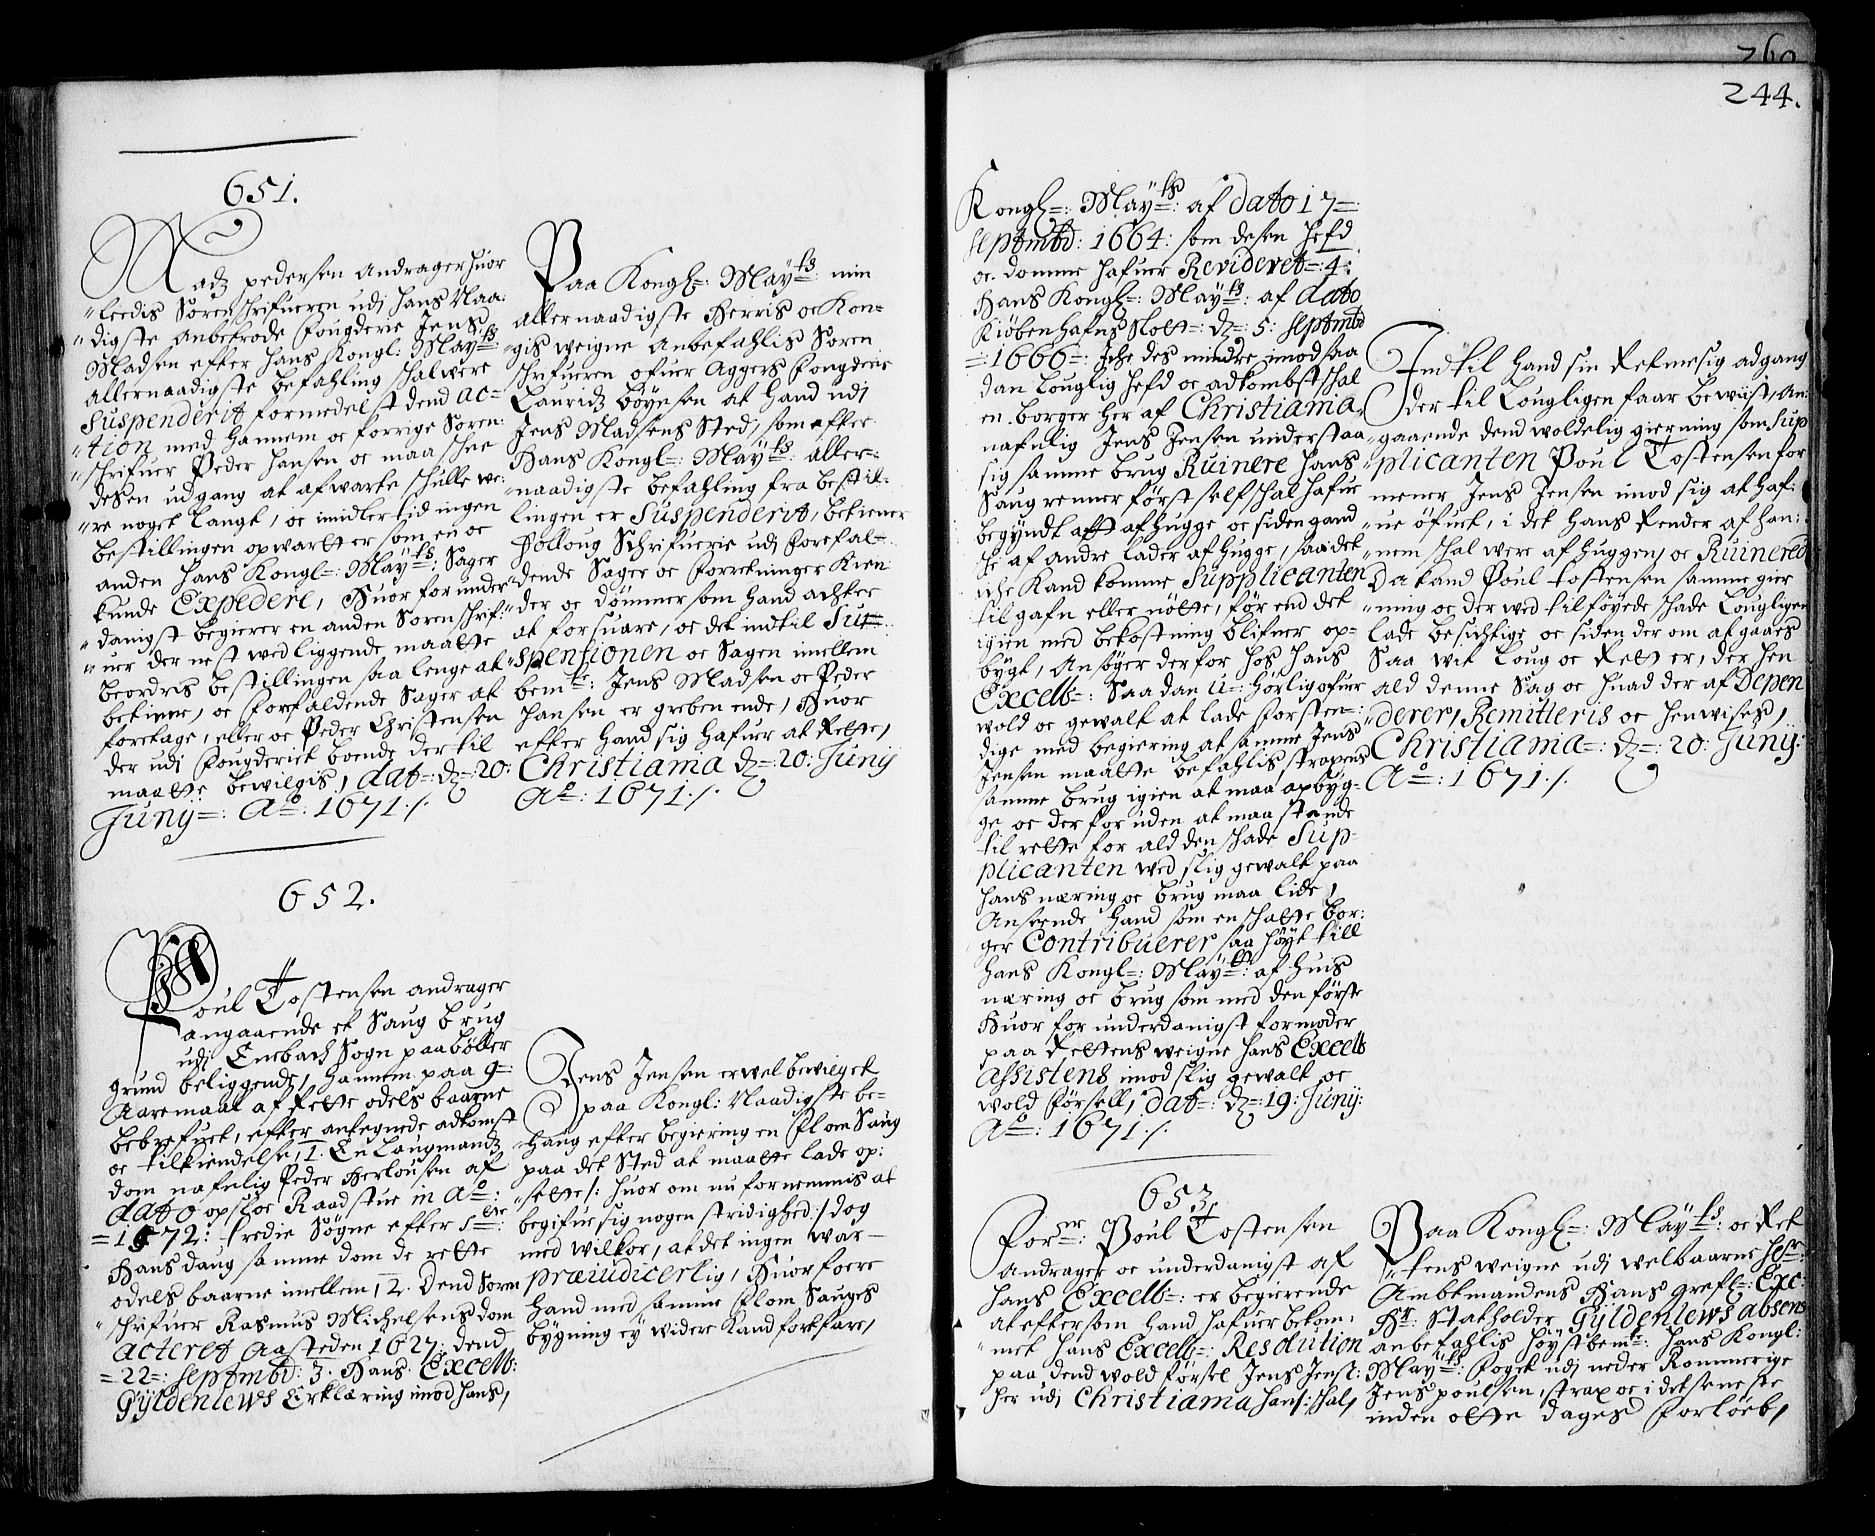 651.
Madz pedersen Andrager huor
"leedis Sorenschrifueren udj hans Naa:
"digste Anbetrode fougderie Jens
Madsen efter hans Kongl: Mayts:
allernaadigste befahling schal were
Suspenderit formedelst dend ac=
"tion med hannem oc forrige Soren:
"schrifuer Peder Hansen oc maaschee
desen udgang at afwarte schulle we:
"re noget langt, oc imidlertid ingen
bestillingen opwarter som en oc
anden hans Kongl=: Mayts: Sager
kunde Expedere, Huorfor under
"danigst begierer en anden Sorenschrif:
"uer der nest wedliggende maatte
beordris bestillingen saa lenge at
betiene, oc forefaldende Sager at
foretage, eller oc Peder Christensen
der udj fougderiet boende der til
maatte bewilgis, dat=: d=20:
Junij=: Ao: 1671 ./.
Paa Kongl=: Mayts: min
allernaadigste Herris oc Kon=
"gis weigne Anbefahlis Soren
schrifueren ofuer Aggers fougderie
Lauridz Böyesen at hand udj
Jens Madsens Sted, som efter
Hans Kongl=: Mayts: aller=
"naadigste befahling fra bestil=
lingen er Suspenderit, betiener
Folloug Schrifuerie udj forefal=
dende Sager oc forretninger Kien
"der oc dömmer som hand achter
at forsuare, oc det indtil Su=
"spensionen oc Sagen imellem
bemte: Jens Madsen oc Peder
Hansen er greben ende, Huor
efter hand sig hafuer at rette,
Christiania d=: 20: Junij
Ao: 1671 ./.
652.
Poul Tostensen andrager
angaaende et Saug brug
udj Enebach Sogn paa böller
grund beliggende, hannem paa 9=
Aaremaal af rette odels baarne
bebrefuet, efter antegnede adkomst
oc tilkiendelse, 1. En Laugmandz
dom nafnlig Peder Herlousen af
dato opsloe Raadstue in Ao:
=1572: tredie Sögne efter s
Hans daug samme dom de rette
odels baarne imellem, 2. Dend Soren
"schrifuer Rasmus Michelsens dom
acteret Aasteden 1627: dend
=22=: septmbd: 3. Hans Excell:
Gyldenlews Erklæring imod hans,
Jens Jensen er wel bewilget
paa Kongl: Naadigste be=
"haug efter begiering en flom Saug
paa det Sted at maatte lade op:
"sette /: huor om nu fornemmis at
begifue sig nogen stridighed :/ dog
med wilkor, at det ingen war
præiudicerlig, Huorfore
hand med samme flom Saugs
bygning ey widere kand fortfare,
260
244.
Kongl=: Mayts: af dato 17=
septmbd: 1664: som desen hefd
oc domme hafuer Revideret=: 4:
Hans Kongl=: Mayts: af dato
Kiöbenhafns slott=: d=: 5: septmbd
=:1666=: Iche des mindre imod saa
dan louglig hefd oc adkombst schal
en borger her af Christiania,
nafnlig Jens Jensen understaa
sig samme brug Ruinere hans
Saugrenner först self schal hafue
begyndt att afhugge oc siden gand
sche af andre lader afhugge, saa det
iche kand komme Supplicanten
til gafn eller nötte, för end det
igien med bekostning blifuer op=
bygt, Ansöger derfor hos hans
Excell=: Saadan u=hörlig ofuer
wold oc gewalt at lade forsten=
dige med begiering at samme Jens
Jensen maatte befahlis strapens
samme brug igien at maa opbyg=
ge oc der foruden at maa stande
til rette for ald den schade Sup=
plicanten wed slig gewalt paa
hans næring oc brug maa lide,
Anseende hand som en schatte bor:
ger Contribuerer saa höyt till
hans Kongl=: Mayts: af huis
næring oc brug som med den förste
Huorfor underdanigst formoder
paa rettens weigne hans Excell
Assistens imod slig gewalt oc
wold försell, dat=: d=: 19: Junij:
Ao: 1671 ./.
Indtil hand sin retmesig adgang
der til lougligen faar bewiist, An:
"gaaende dend woldelig gierning som sup
"plicanten Poul Tostensen for
mener Jens Jensen imod sig at haf:
"ue öfuet, i det hans render af han:
"nem schal were afhuggen, oc Ruinered
Da kand Poul tostensen samme gier
"ning oc der wed tilföyede schade lougligen
lade besichtige oc siden der om at gaaes
Saa wit loug oc rett er, der hen
ald denne Sag oc huad der af Depen
"derer, Remitteris oc henwises,
Christiania=: d=: 20: Junij:
Ao: 1671 ./.
653.
Forner: Poul Tostensen
Andrager oc underdanigst af
hans Excell=: er begierende
at eftersom hand hafuer bekom:
"met hans Excell=: Resolution
paa dend wold försel Jens Jens:
her udj Christiania hans: schal,
Paa Kongl=: Mayts: oc Ret
"tens weigne udj welbaarne Her:
Ambtmandens Hans Grefl=: Exc:
Hr: Statholder Gyldenlews absens
anbefahlis höystbemte: hans Kongl:
Mayts: foget udj neder Rommerige
Jens poulsen, strax oc i det seneste
inden otte dages forlöeb,